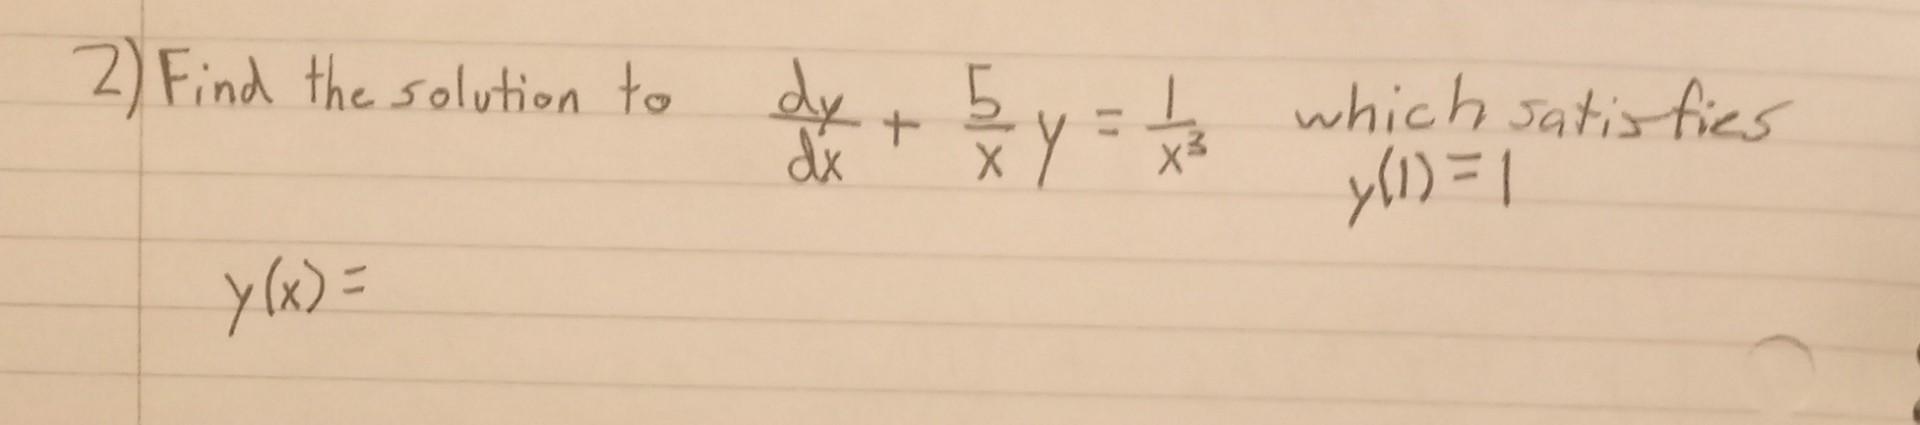 2) Find the solution to dy/dx + 5/x y = 1/x³ which satisfies
y(1) = 1
y(x) =